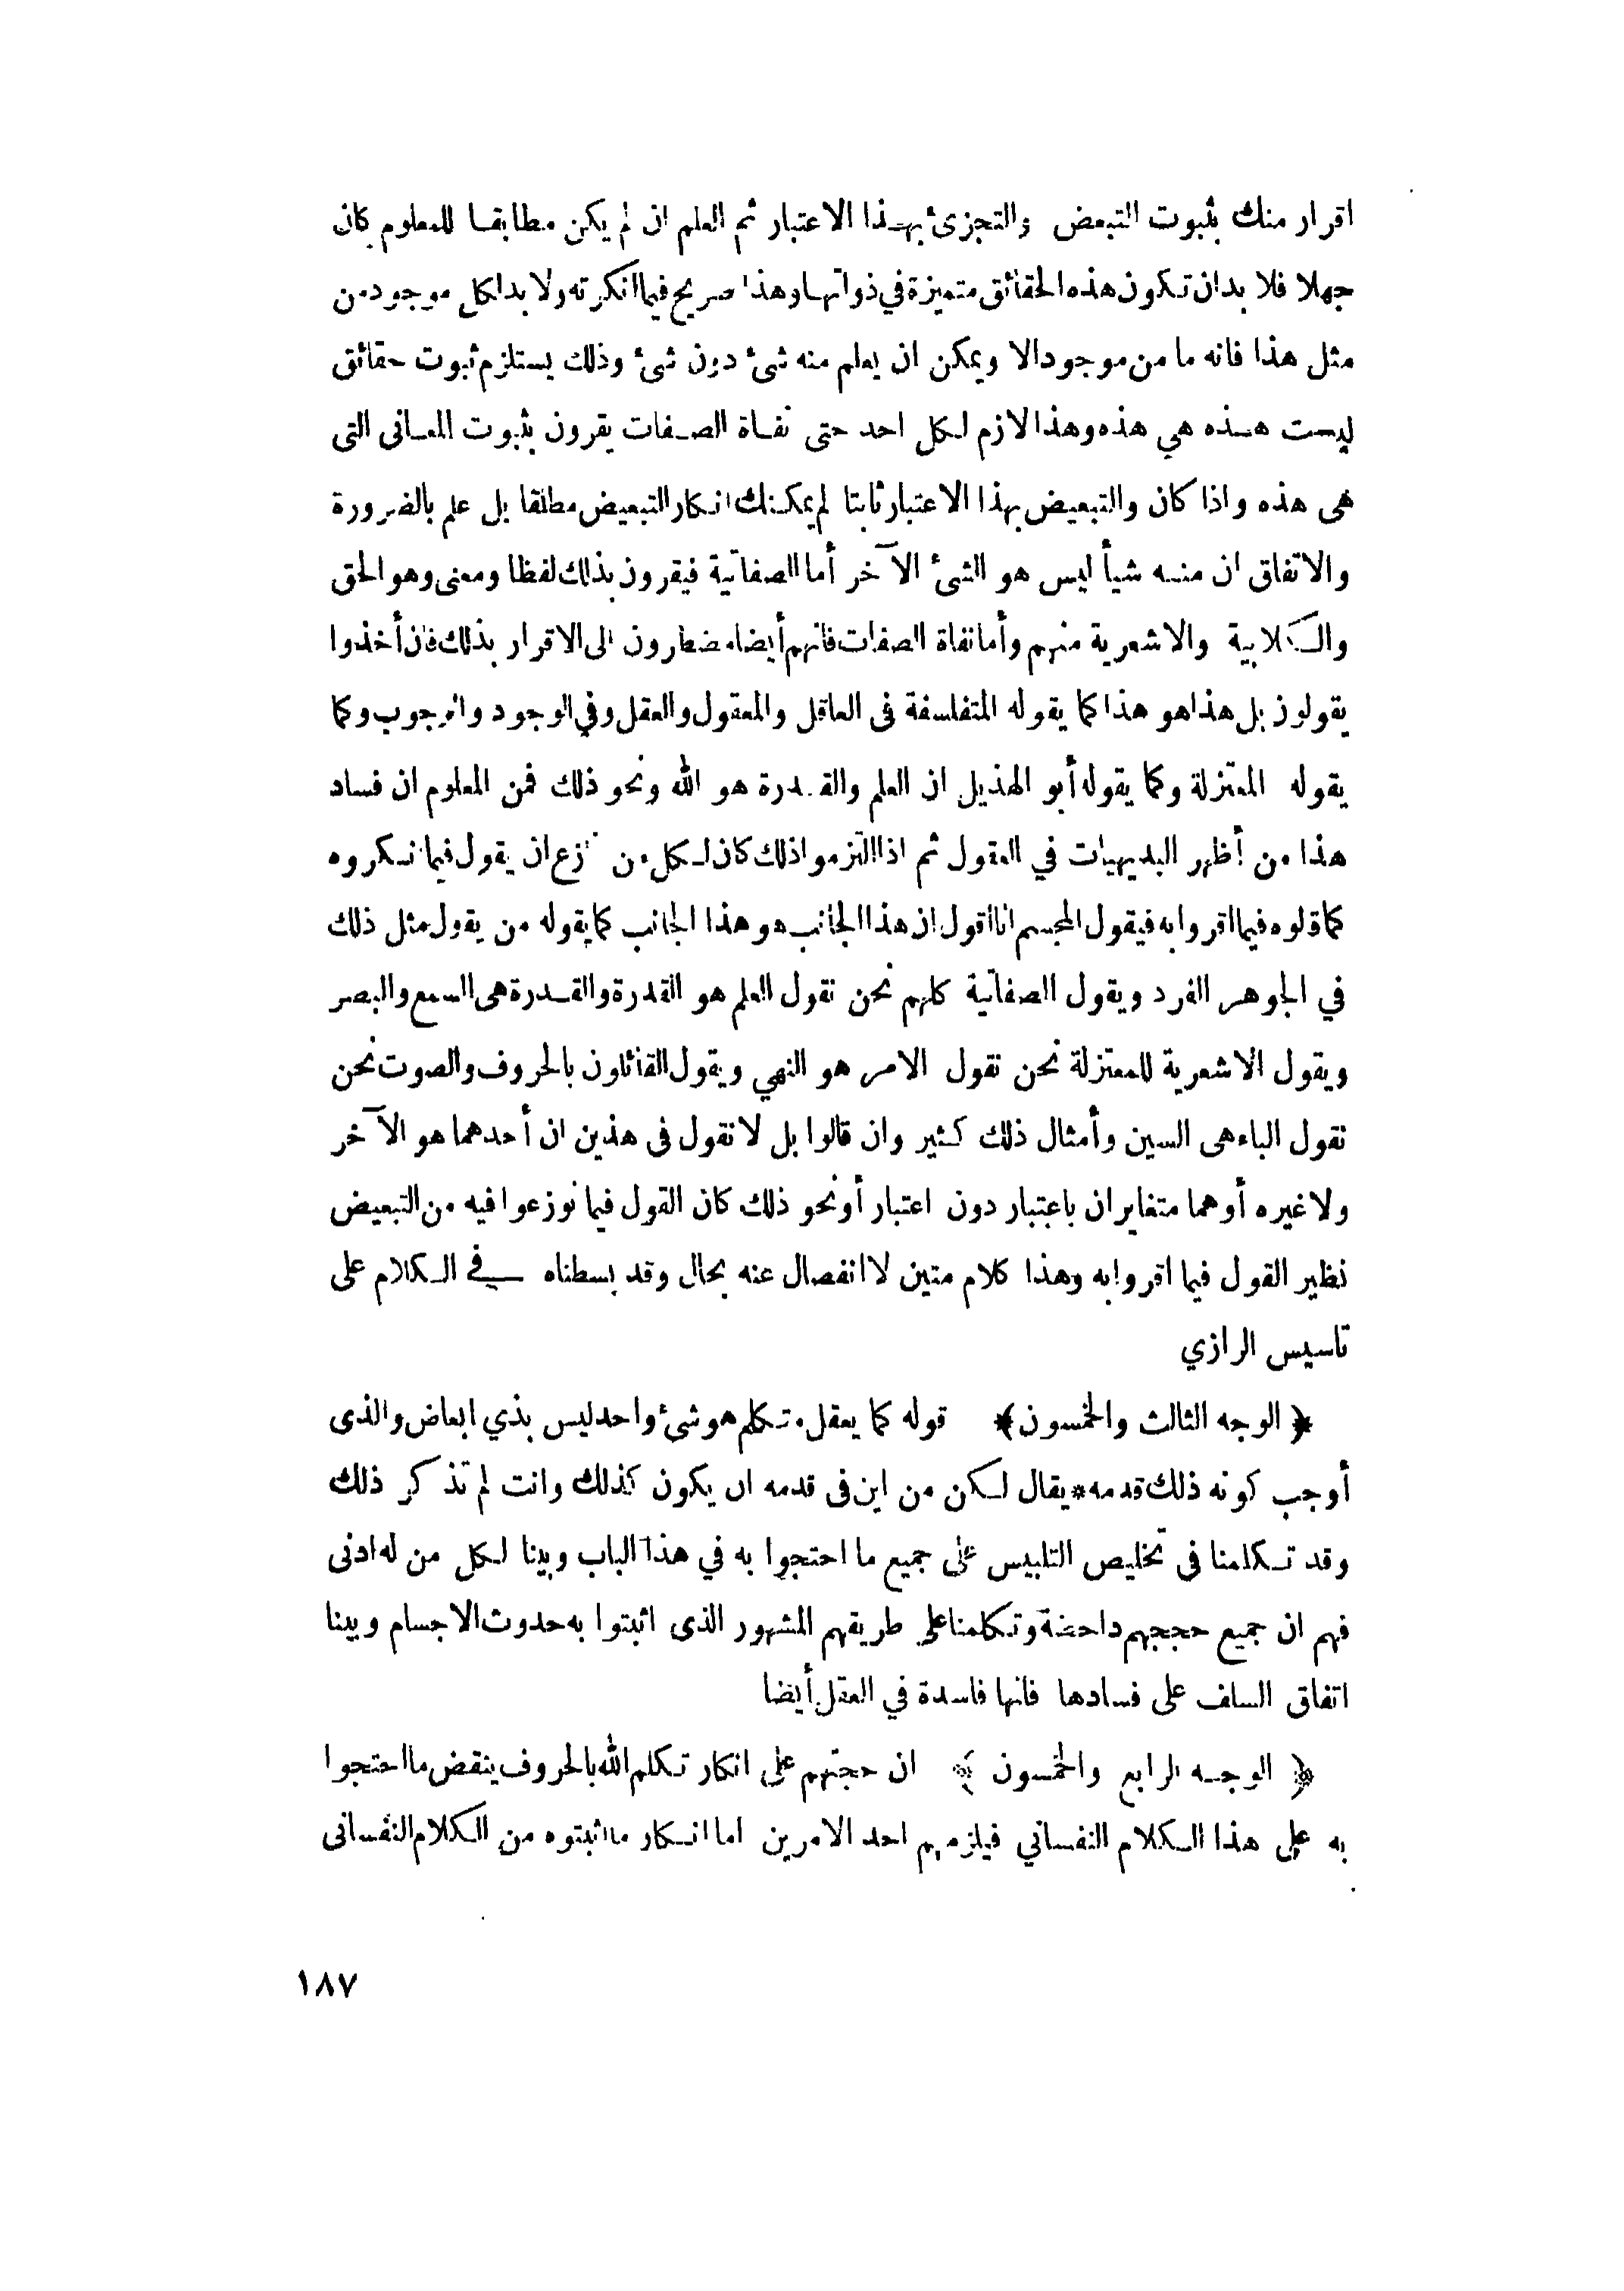 اقرار منك بثبوت التبعض والتجزئ بهذا الاعتبار ثم العلم ان لم يكن مطابقا للمعلوم كان
جهلا فلا بد ان تكون هذه الحقائق متميزة في ذواتها وهذا صريح فيما انكرته ولا بد لكل موجود من
مثل هذا فانه ما من موجود الا ويمكن ان يعلم منه شئ دون شئ وذلك يستلزم ثبوت حقائق
ليست هذه هي هذه وهذا لازم لكل احد حتى نفاة الصفات يقرون بثبوت المعانى التى
هى هذه واذا كان والتبعيض بهذا الاعتبار ثابتا لم يمكنك انكار التبعيض مطلقا بل علم بالضرورة
والاتفاق ان منه شيأ ليس هو الشئ الآخر أما الصفاتية فيقرون بذلك لفظا ومعنى وهو الحق
والكلابية والاشعرية منهم وأما نفاة الصفات فانهم أيضا مضطرون الى الاقرار بذلك فان أخذوا
يقولون بل هذا هو هذا كما يقوله المتفلسفة فى العاقل والمعقول والعقل وفي الوجود والوجوب وكما
يقوله المعتزلة وكما يقوله أبو الهذيل ان العلم والقدرة هو الله ونحو ذلك فمن المعلوم ان فساد
هذا من أظهر البديهيات في العقول ثم اذا التزموا ذلك كان لكل من نازع ان يقول فيما نكروه
كما قلوه فيما اقروا به فيقول المجسم انا أقول ان هذا الجانب هو هذا الجانب كما يقوله من يقول مثل ذلك
في الجوهر الفرد ويقول الصفاتية كلهم نحن نقول العلم هو القدرة والقدرة هى السمع والبصر
ويقول الاشعرية للمعتزلة نحن نقول الامر هو النهي ويقول القائلون بالحروف والصوت نحن
نقول الباء هى السين وأمثال ذلك كثير وان قالوا بل لا نقول فى هذين ان أحدهما هو الآخر
ولا غيره أوهما متغايران باعتبار دون اعتبار أونحو ذلك كان القول فيما نوزعوا فيه من التبعيض
نظير القول فيما اقروا به وهذا كلام متين لا انفصال عنه بحال وقد بسطناه في الكلام على
تاسيس الرازي
﴿ الوجه الثالث والخمسون ﴾ قوله كما يعقل متكلم هو شئ واحد ليس بذي ابعاض والذى
أوجب كونه ذلك قدمه * يقال لكن من اين فى قدمه ان يكون كذلك وانت لم تذكر ذلك
وقد تكلمنا فى تخليص التلبيس على جميع ما احتجوا به في هذا الباب وبينا لكل من له ادنى
فهم ان جميع حججهم داحضة وتكلمنا على طريقهم المشهور الذى اثبتوا به حدوث الاجسام وبينا
اتفاق السلف على فسادها فانها فاسدة في العقل أيضا
﴿ الوجه الرابع والخمسون ﴾ ان حجتهم على انكار تكلم الله بالحروف ينقض ما احتجوا
به على هذا الكلام النفساني فيلزمهم احد الامرين اما انكار ما اثبتوه من الكلام النفسانى
١٨٧